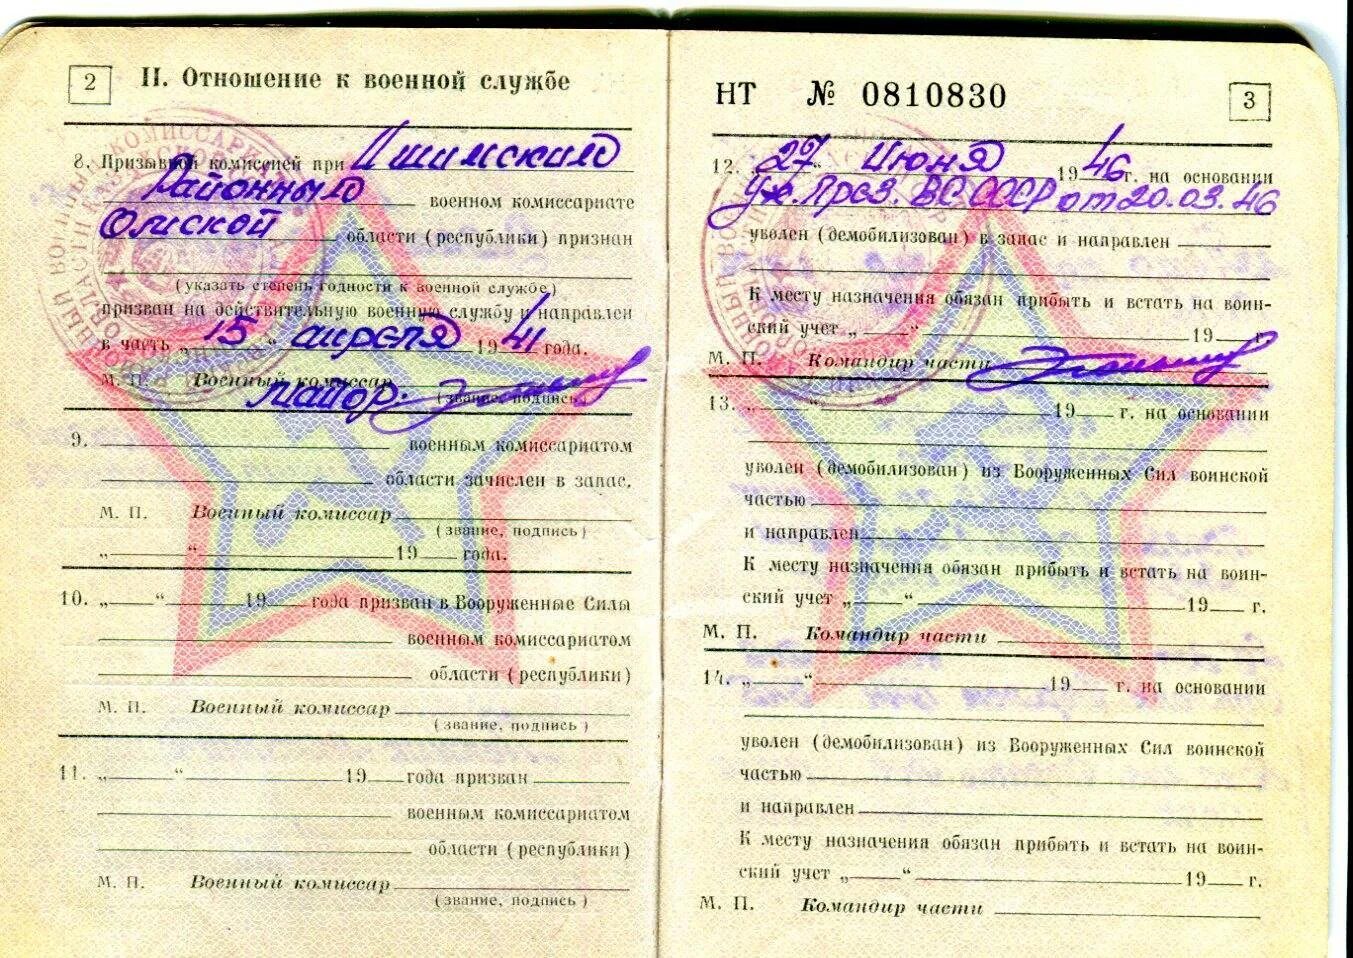 2
II. Отношение к военной службе
8. Призывной комиссией при Ишимским
Районным военном комиссариате
Омской области (республики) признан
(указать степень годности к военной службе)
призван на действительную военную службу и направлен
в часть „15“ апреля 1941 года.
М. П. Военный комиссар
Майор. (звание, подпись)
9. военным комиссариатом
области зачислен в запас.
М. П. Военный комиссар
(звание, подпись)
„ “ 19 года.
10. „ “ 19 года призван в Вооруженные Силы
военным комиссариатом
области (республики)
М. П. Военный комиссар
(звание, подпись)
11. „ “ 19 года призван
военным комиссариатом
области (республики)
М. П. Военный комиссар
(звание, подпись)
НТ № 0810830
3
12. „27“ Июня 1946г. на основании
Ук. През. ВС СССР от 20.03.46
уволен (демобилизован) в запас и направлен
К месту назначения обязан прибыть и встать на воин-
ский учет „ “ 19 г.
М. П. Командир части
13. „ “ 19 г. на основании
уволен (демобилизован) из Вооруженных Сил воинской
частью
и направлен
К месту назначения обязан прибыть и встать на воин-
ский учет „ “ 19 г.
М. П. Командир части
14. „ “ 19 г. на основании
уволен (демобилизован) из Вооруженных Сил воинской
частью
и направлен
К месту назначения обязан прибыть и встать на воин-
ский учет „ “ 19 г.
М. П. Командир части